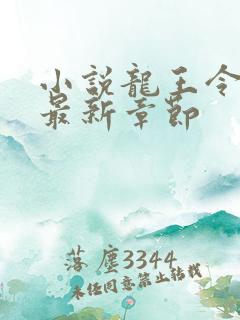 小說龍王令
最新章節
落塵3344
未经同意禁止转载